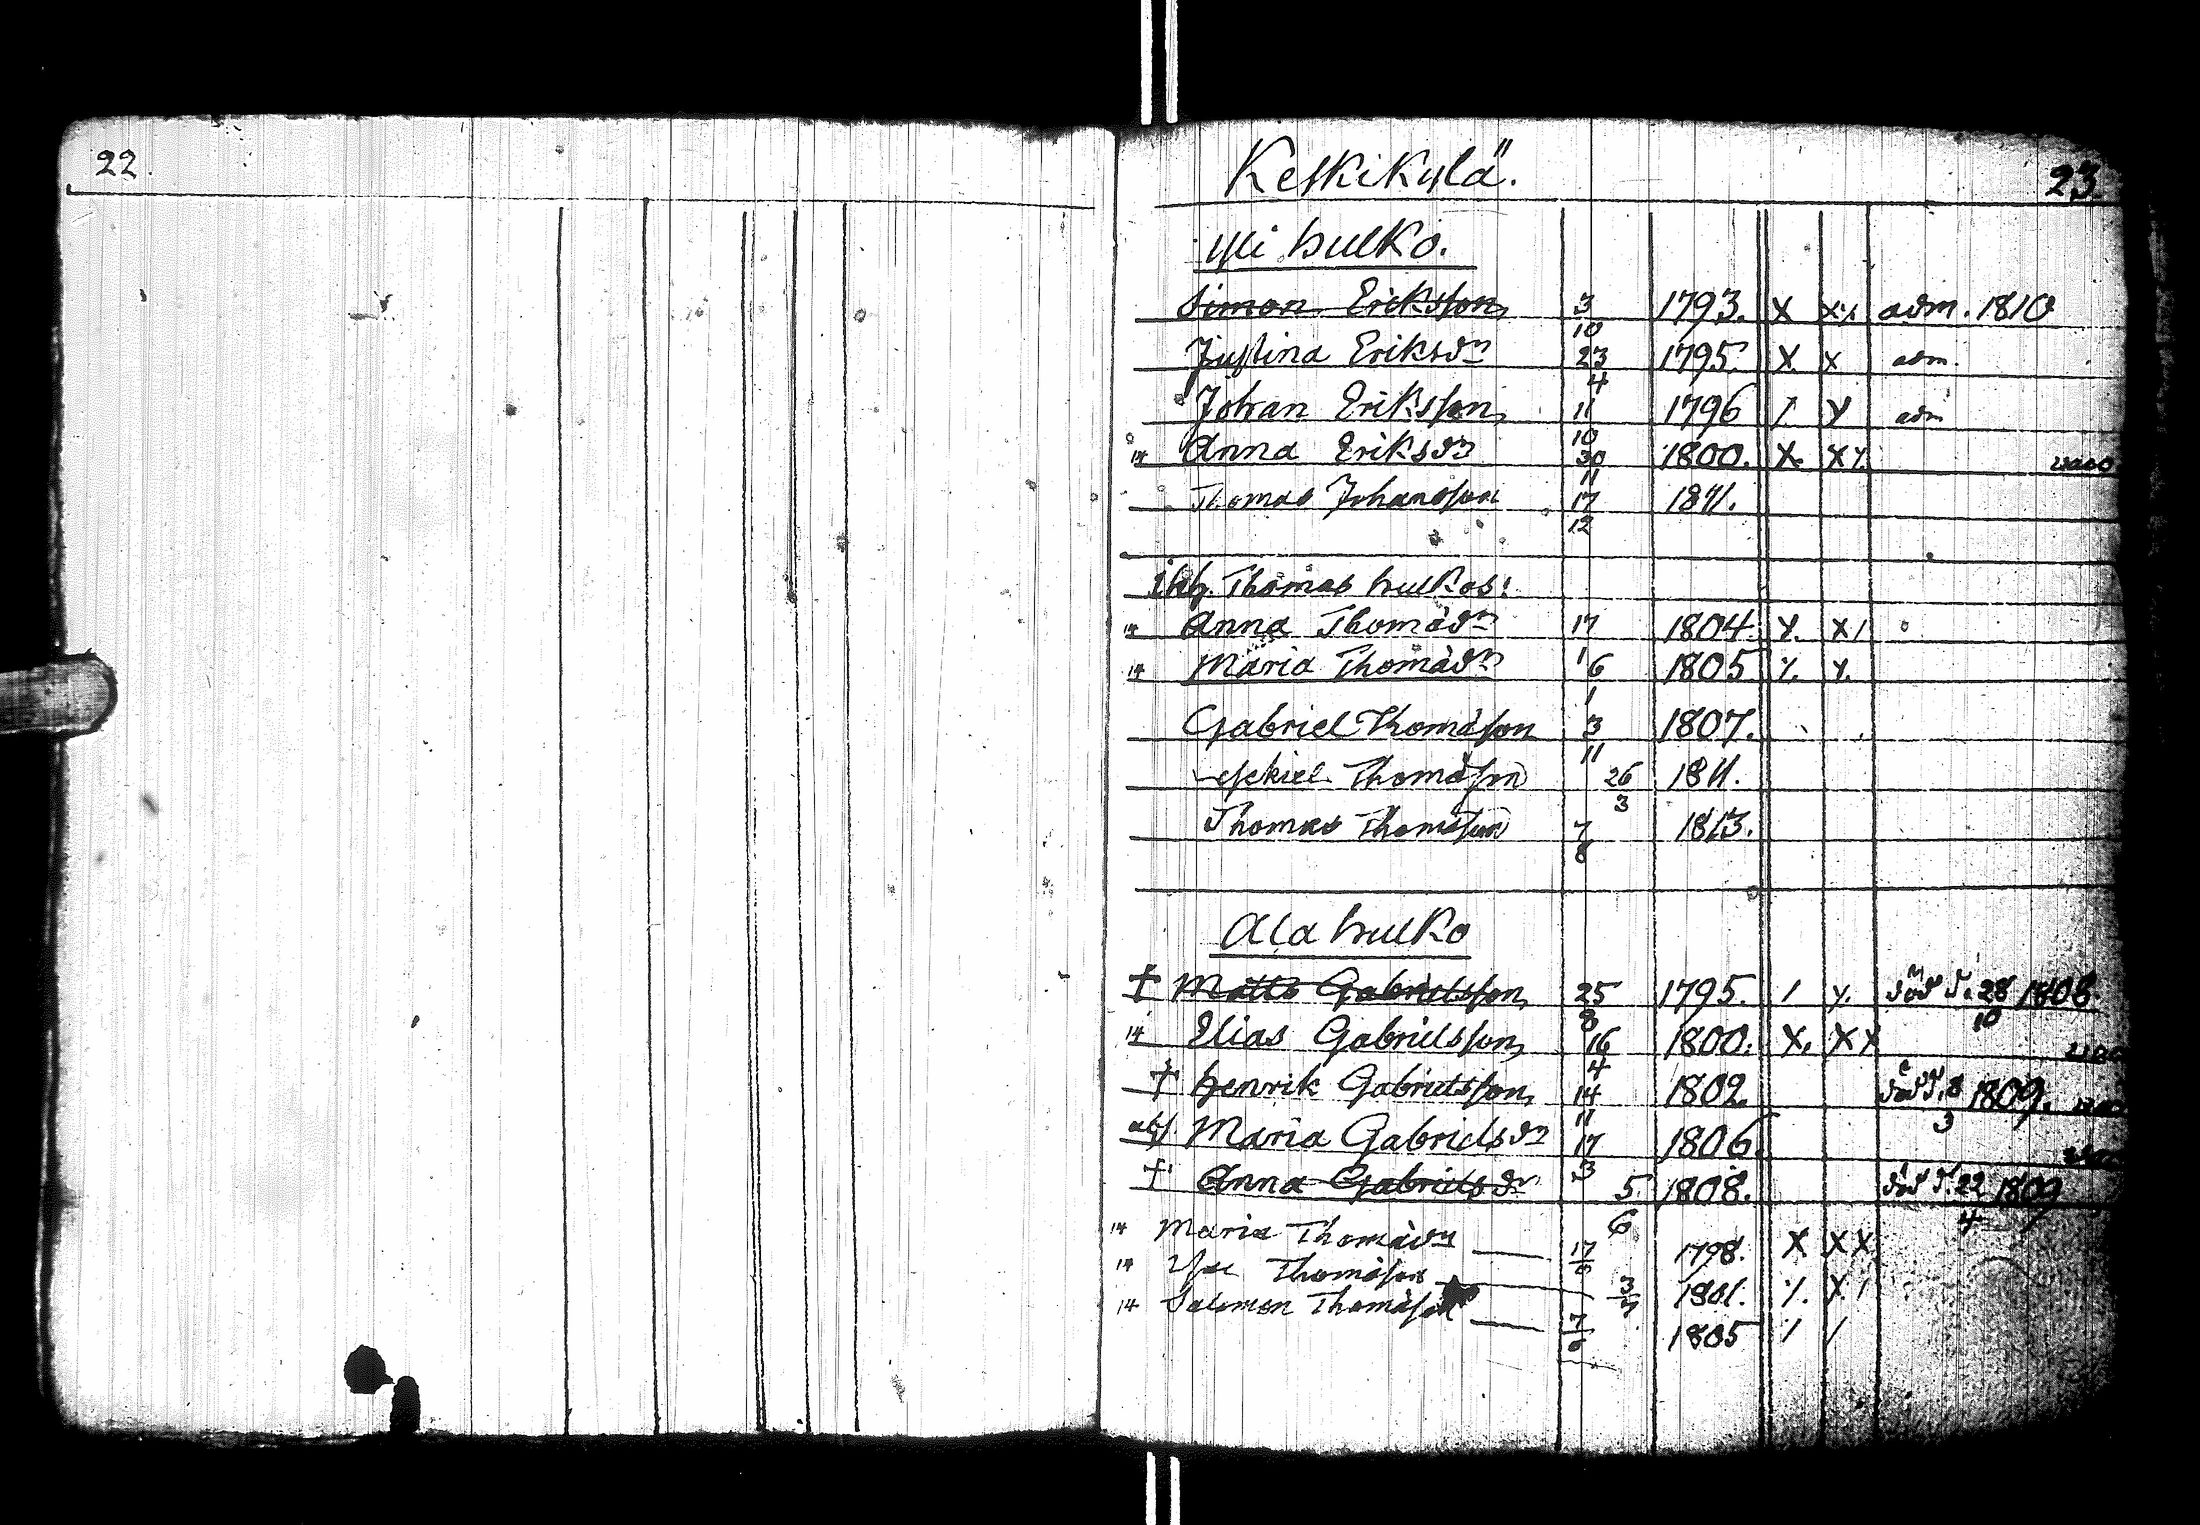 22.
Keskikylä. 23.
yli hulko.
Simon Eriksson 3/10 1793. X X./. adm. 1810
Justina Eriksdr 23/4 1795. X. x adm.
Johan Eriksson 11/10 1796 / y adm
14 Anna Eriksdr 30/11 1800. X. X /.
Thomas Johansson 17/12 1811.
Thomas hulkos:
14 Anna Thomädr 17/1 1804. X. X /
14 Maria Thomädr 6/1 1805 /. /.
Gabriel Thomäson 3/11 1807.
Esekiel Thomäson 26/3 1811.
Thomas Thomäson 7/8 1813.
Ala hulko
† Matts Gabrielsson 25/8 1795. / y. död d. 28/10 1808.
14 Elias Gabrielsson 16/4 1800. X. X X
† Henrik Gabrielsson 14/11 1802. död d. 8/3 1809.
Maria Gabrielsdr 17/3 1806.
† Anna Gabrielsdr 5/6 1808. död d. 22/4 1809
14 Maria Thomädr 17/6 1798. X X X
14 Thomäson 3/7 1801. /. X /
14 Salomon Thomäson 7/6 1805 / /